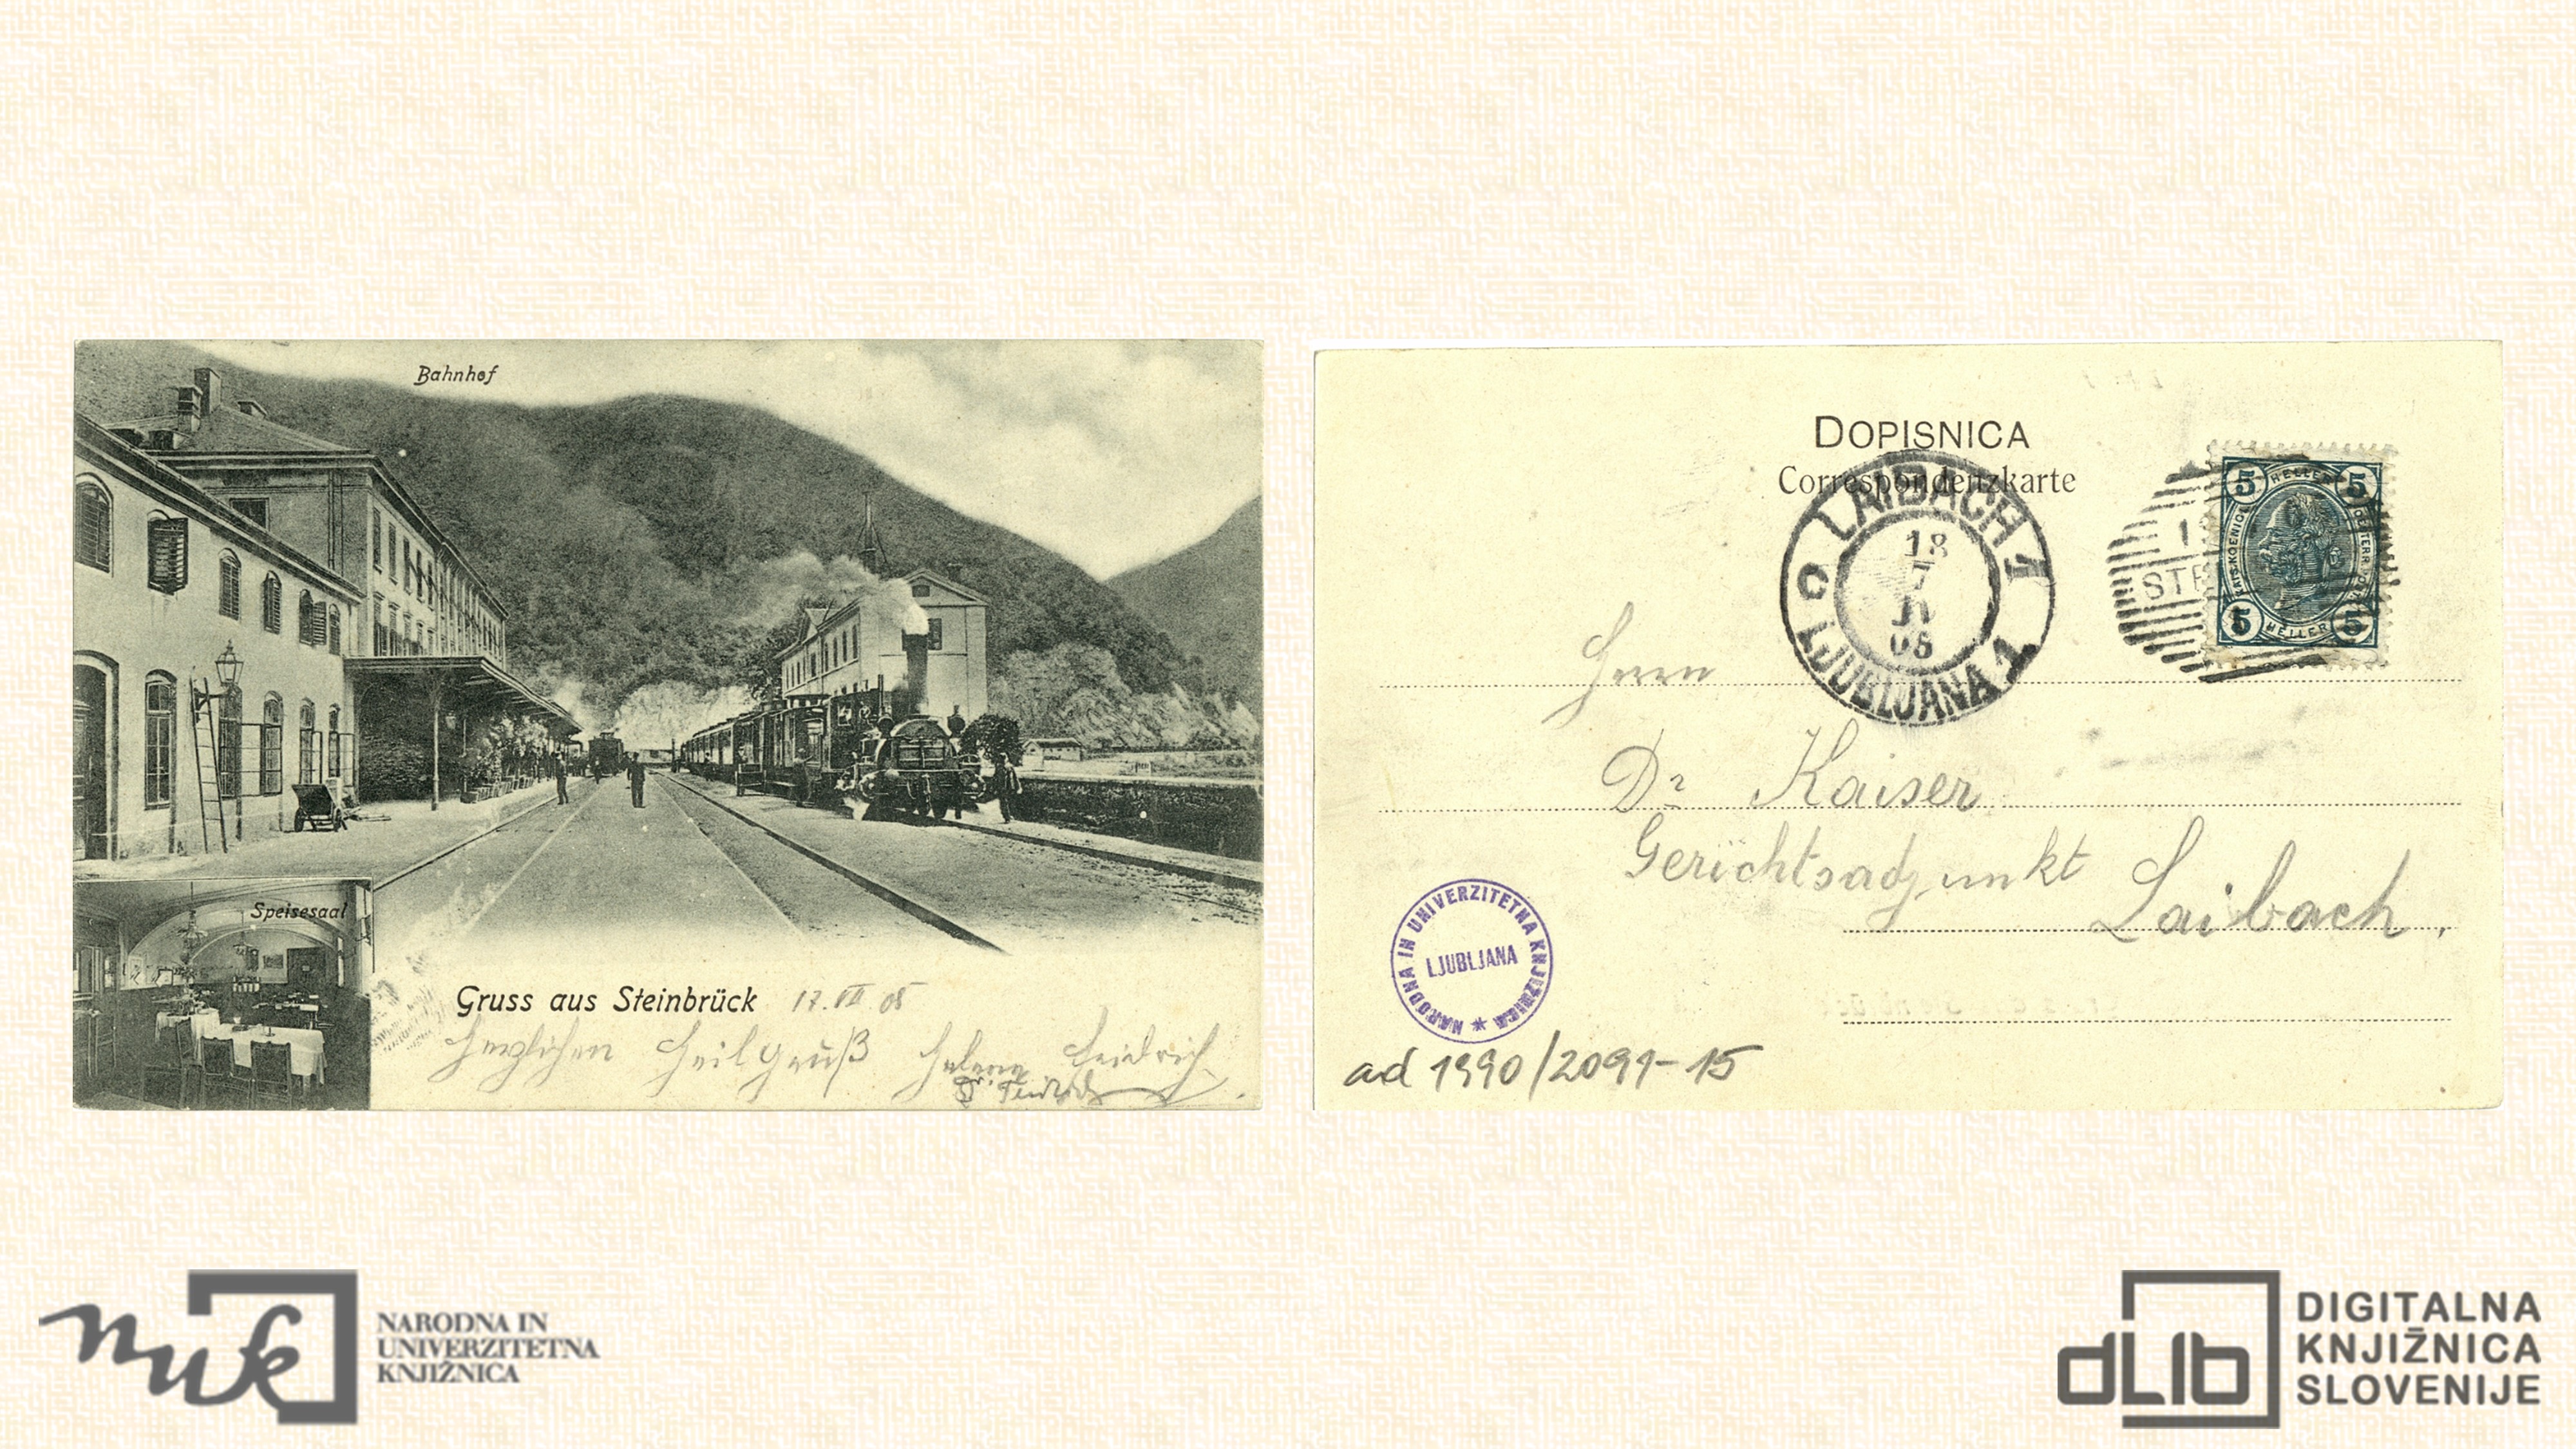 Bahnhof
Speisesaal
Gruss aus Steinbrück 17. VII 05
Herzlichen Heilgruß Helene
DOPISNICA
Correspondenzkarte
LAIBACH 1
18
7
08
LJUBLJANA 1
5 HELLER 5
5 HELLER 5
STE
Herrn
Dr Kaiser
Gerichtsadjunkt
Laibach,
NARODNA IN UNIVERZITETNA KNJIŽNICA
LJUBLJANA
ad 1990/2099-15
nuk
NARODNA IN
UNIVERZITETNA
KNJIŽNICA
dLib
DIGITALNA
KNJIŽNICA
SLOVENIJE